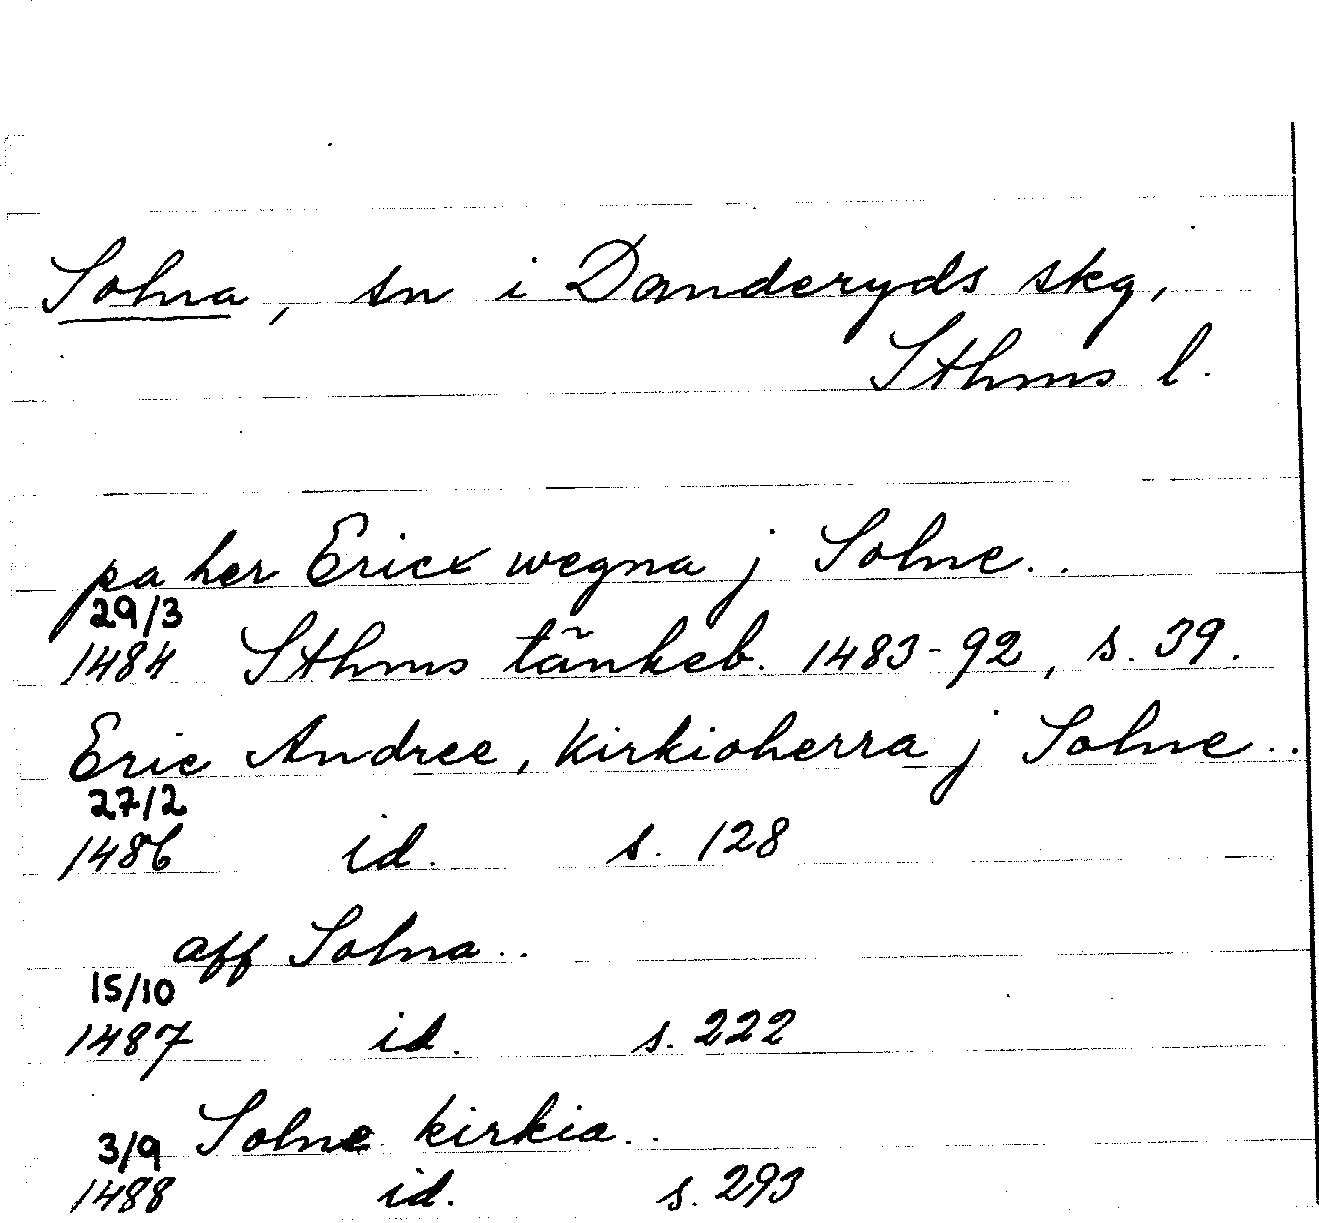 Solna, sn i Danderyds skg,
Sthms l.
pa her Ericx wegna j Solne..
29/3
1484 Sthms tänkeb. 1483-92, s. 39.
Eric Andree, kirkioherra j Solne..
27/2
1486 id. s. 128
aff Solna..
15/10
1487 id. s. 222
Solne kirkia..
3/9
1488 id. s. 293